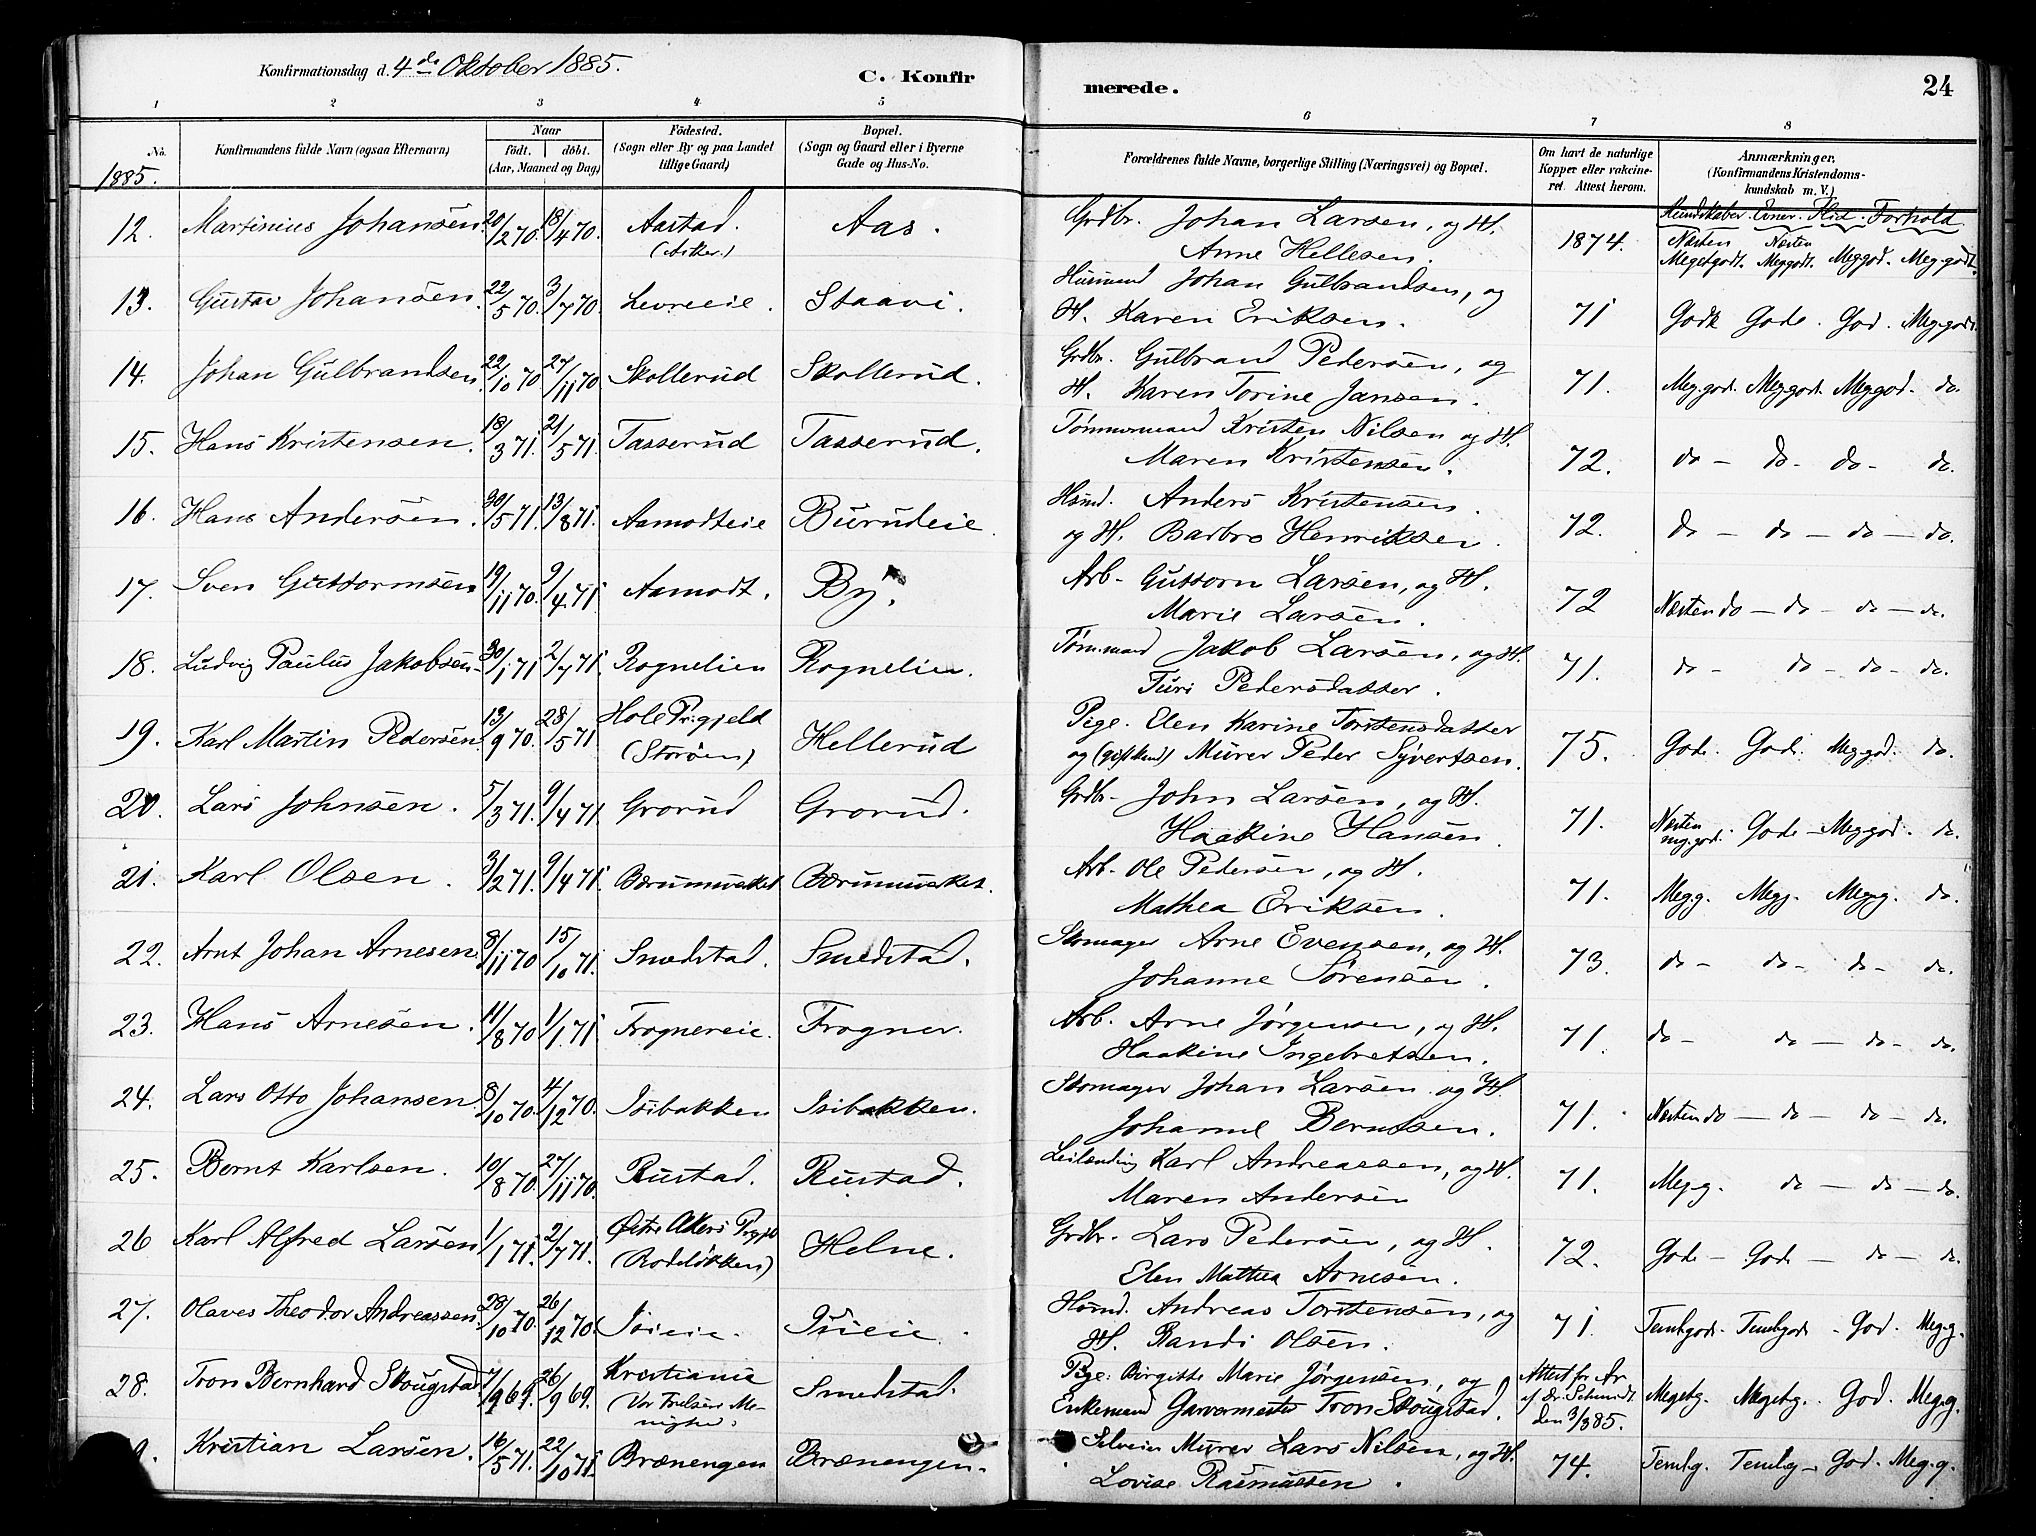 Konfirmationsdag d. 4de Oktober 1885.
C. Konfirmerede.
24
1 2 3 4 5 6 7 8
No. Konfirmandens fulde Navn (ogsaa Efternavn) Naar født. døbt. (Aar, Maaned og Dag) Fødested. (Sogn eller By og paa Landet tillige Gaard) Bopæl. (Sogn og Gaard eller i Byerne Gade og Hus-No. Forældrenes fulde Navne, borgerlige Stilling (Næringsvei) og Bopæl. Om havt de naturlige Kopper eller vakcineret. Attest herom. Anmærkninger. (Konfirmandens Kristendomskundskab m. V.)
1885.
Kundskaber. Evner. Flid. Forhold
12. Martinius Johansen 20/2 70. 18/4 70. Aastad. (Asker.) Aas. Grdbr. Johan Larsen, og H. Anne Hellesen. 1874. Næsten Megetgodt. Næsten Meggodt. Meggod. Meg-godt.
13. Gustav Johansen. 22/5 70. 3/7 70. Levreeie. Staavi. Husmand Johan Gulbrandsen, og H. Karen Eriksen. 71 Godt Gode. God. Meg-godt.
14. Johan Gulbrandsen 22/10 70 27/11 70 Skollerud Skollerud. Grdbr. Gulbrand Pedersen, og H. Karen Torine Jansen. 71. Meg.god. Meg.god. Meg.god. do.
15. Hans Kristensen. 18/3 71. 21/5 71. Tasserud Tasserud. Tømmermand Kristen Nilsen og H. Maren Kristensen. 72. do - do - do - do.
16. Hans Andersen. 30/5 71. 13/8 71. Aamodteie Burudeie. Hsmd. Anders Kristensen. og H. Barbro Henriksen. 72. do - do - do - do.
17. Sven Guttormsen 19/11 70. 9/4 71 Aamodt. By. Arb. Guttorm Larsen, og H. Marie Larsen. 72 Næsten do - do - do - do.
18. Ludvig Paulus Jakobsen 30/1 71 2/7 71. Rognelien Rognelien. Tømmand Jakob Larsen, og H. Turi Pedersdatter. 71. do - do - do - do.
19. Karl Martin Pedersen 13/9 70. 28/5 71 Hole Pr.gjeld (Storøen) Hellerud Pige. Elen Karine Torstensdatter og (gift Mand) Murer Peder Syvertsen. 75. Gode. Gode. Meg.god. do.
20. Lars Johnsen. 5/3 71. 9/4 71. Grorud Grorud. Grdbr. John Larsen, og H. Haakine Hansen. 71. Næsten mg.god. Gode - Meg.god. do.
21. Karl Olsen. 3/2 71. 9/4 71. Bærumsverket Bærumsverket. Arb. Ole Pedersen, og H. Mathea Eriksen. 71. Meg.g. Meg.g. Meg.g. do.
22. Arnt Johan Arnesen 8/11 70 15/10 71. Smedstad. Smedstad. Skomager Arne Evensen, og H. Johanne Sørensen. 73. do - do - do - do.
23. Hans Arnesen. 11/8 70 1/1 71. Frognereie. Frogner. Arb. Arne Jørgensen, og H. Haakine Ingebretsen. 71. do - do - do - do.
24. Lars Otto Johansen 8/10 70. 4/12 70. Isibakken Isibakken. Skomager Johan Larsen og H. Johanne Berntsen. 71. Næsten do - do - do - do.
25. Bernt Karlsen. 10/8 70. 27/11 70. Rustad. Rustad. Leilænding Karl Andreassen, og H. Maren Andersen 71. Meg.g. do - do - do.
26 Karl Alfred Larsen 1/1 71. 2/7 71. Østre Akers Prgjld (Rodeløkken) Helne. Grdbr. Lars Pedersen, og H. Elen Mathea Arnesen. 72. Gode - Gode - do - do.
27. Olaves Theodor Andreassen 28/10 70. 26/12 70. Isieie. Isieie. Hsmd. Andreas Torstensen, og H. Randi Olsen. 71. Temlgode. Temlgode - God. Meg.g.
28. Tron Bernhard Skougstad 7/9 69. 26/9 69. Kristiania (Vor Frelsers Menighed. Smedstad. Pige. Birgitte Marie Jørgensen, og Enkemand Garvermester Tron Skougstad. Attest fr. Ar. af Dr. Schmidt den 3/8 85. Megetg. Megetg. God. Meg.g.
9. Kristian Larsen. 16/5 71. 22/10 71. Brænengen Brænengen. Selveier Murer Lars Nilsen, og H. Lovise Rasmussen. 74. Temlg. Temlg - God. Meg.g.